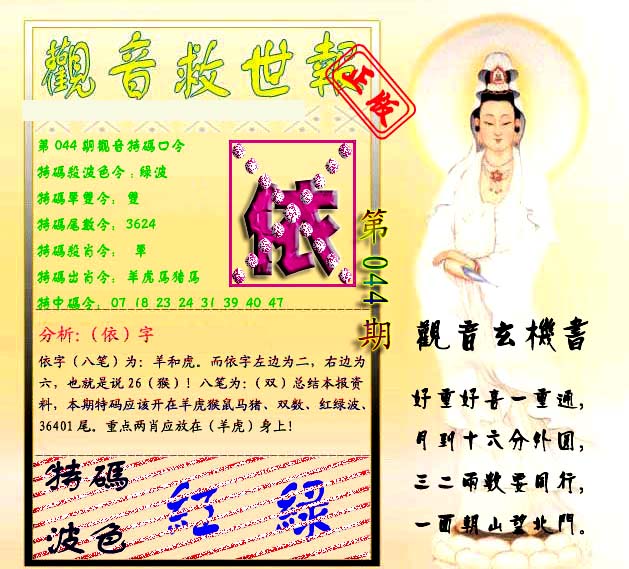 觀音救世報
正版
第044期觀音特碼口令
特碼殺波色令:綠波
特碼單雙令: 雙
特碼尾數令: 3624
特碼殺肖令: 單
特碼出肖令: 羊虎馬猪馬
特中碼令: 07 18 23 24 31 39 40 47
依
第044期
分析:(依)字
依字(八笔)为: 羊和虎。而依字左边为二, 右边为
六, 也就是说26(猴)! 八笔为:(双)总结本报资
料, 本期特码应该开在羊虎猴鼠马猪、双数、红绿波、
36401尾。重点两肖应放在(羊虎)身上!
特碼
波色
紅 綠
觀音玄機書
好重好喜一重通,
月到十六分外圆,
三二兩數要同行,
一面朝山望北門。